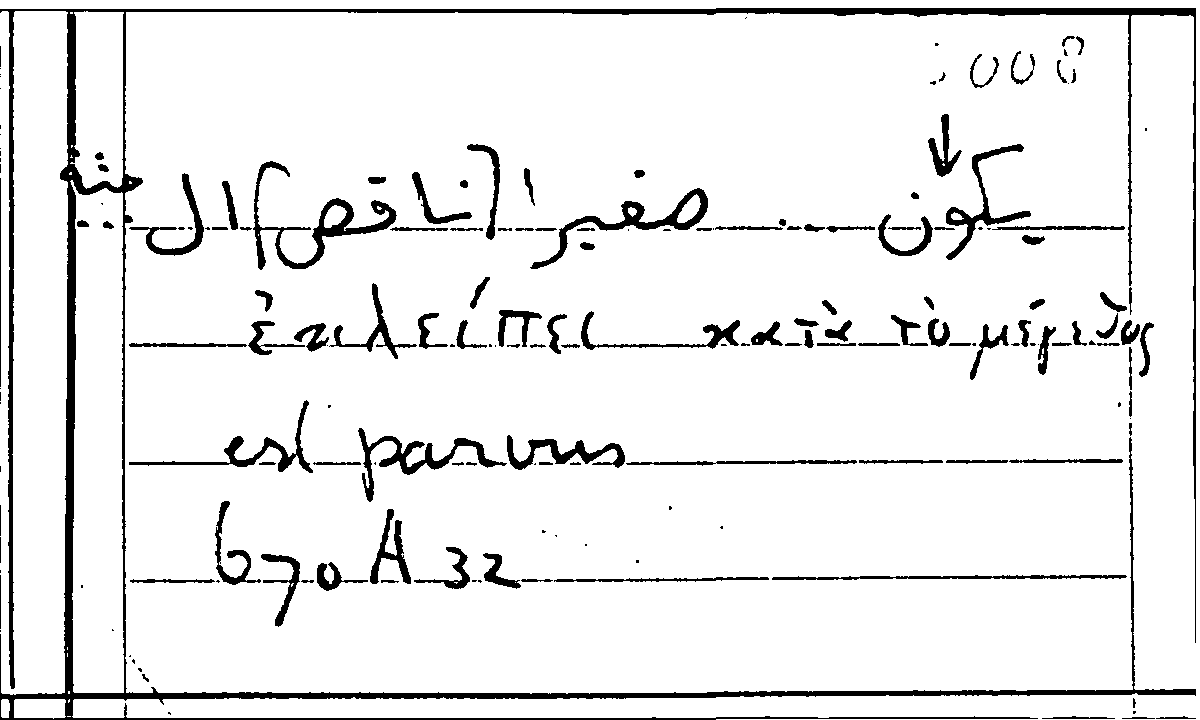 008
يكون .... صغيرا [ناقص] الجثة
ἐκλείπει κατὰ τὸ μέγεθος
est parvus
670 A 32